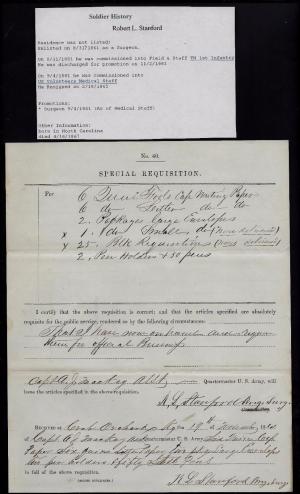 Soldier History
Robert L. Stanford
Residence was not listed;
Enlisted on 8/31/1861 as a Surgeon.
On 8/31/1861 he was commissioned into Field & Staff TN 1st Infantry
He was discharged for promotion on 11/2/1861
On 9/4/1861 he was commissioned into
US Volunteers Medical Staff
He Resigned on 2/16/1865
Promotions:
* Surgeon 9/4/1861 (As of Medical Staff)
Other Information:
born in North Carolina
died 4/16/1867
No. 40.
SPECIAL REQUISITION.
For
6 Quires Fools Cap Writing Paper
6 do Letter do do
2. Packages Large Envelopes
x 1. do Small do (None delivered)
x 25. Blk Requisitions (None delivered)
2. Pen Holders & 50 pens
I certify that the above requisition is correct; and that the articles specified are absolutely
requisite for the public service, rendered so by the following circumstances:
That I have now on hand and require
them for official Business
Capt A. J. Mackay A.Q.M. Quartermaster U. S. Army, will
issue the articles specified in the above requisition.
R. L. Stanford Brig. Surg.
Commanding.
RECEIVED at Crab Orchard, Ky 19th
of Capt A. J. Mackay Quartermaster U. S. Army, Six Quires Cap
Paper Six quires Letter Paper
Pen holders
in full of the above requisition.
(SIGNED DUPLICATES.)
R. L. Stanford Brig. Surg.